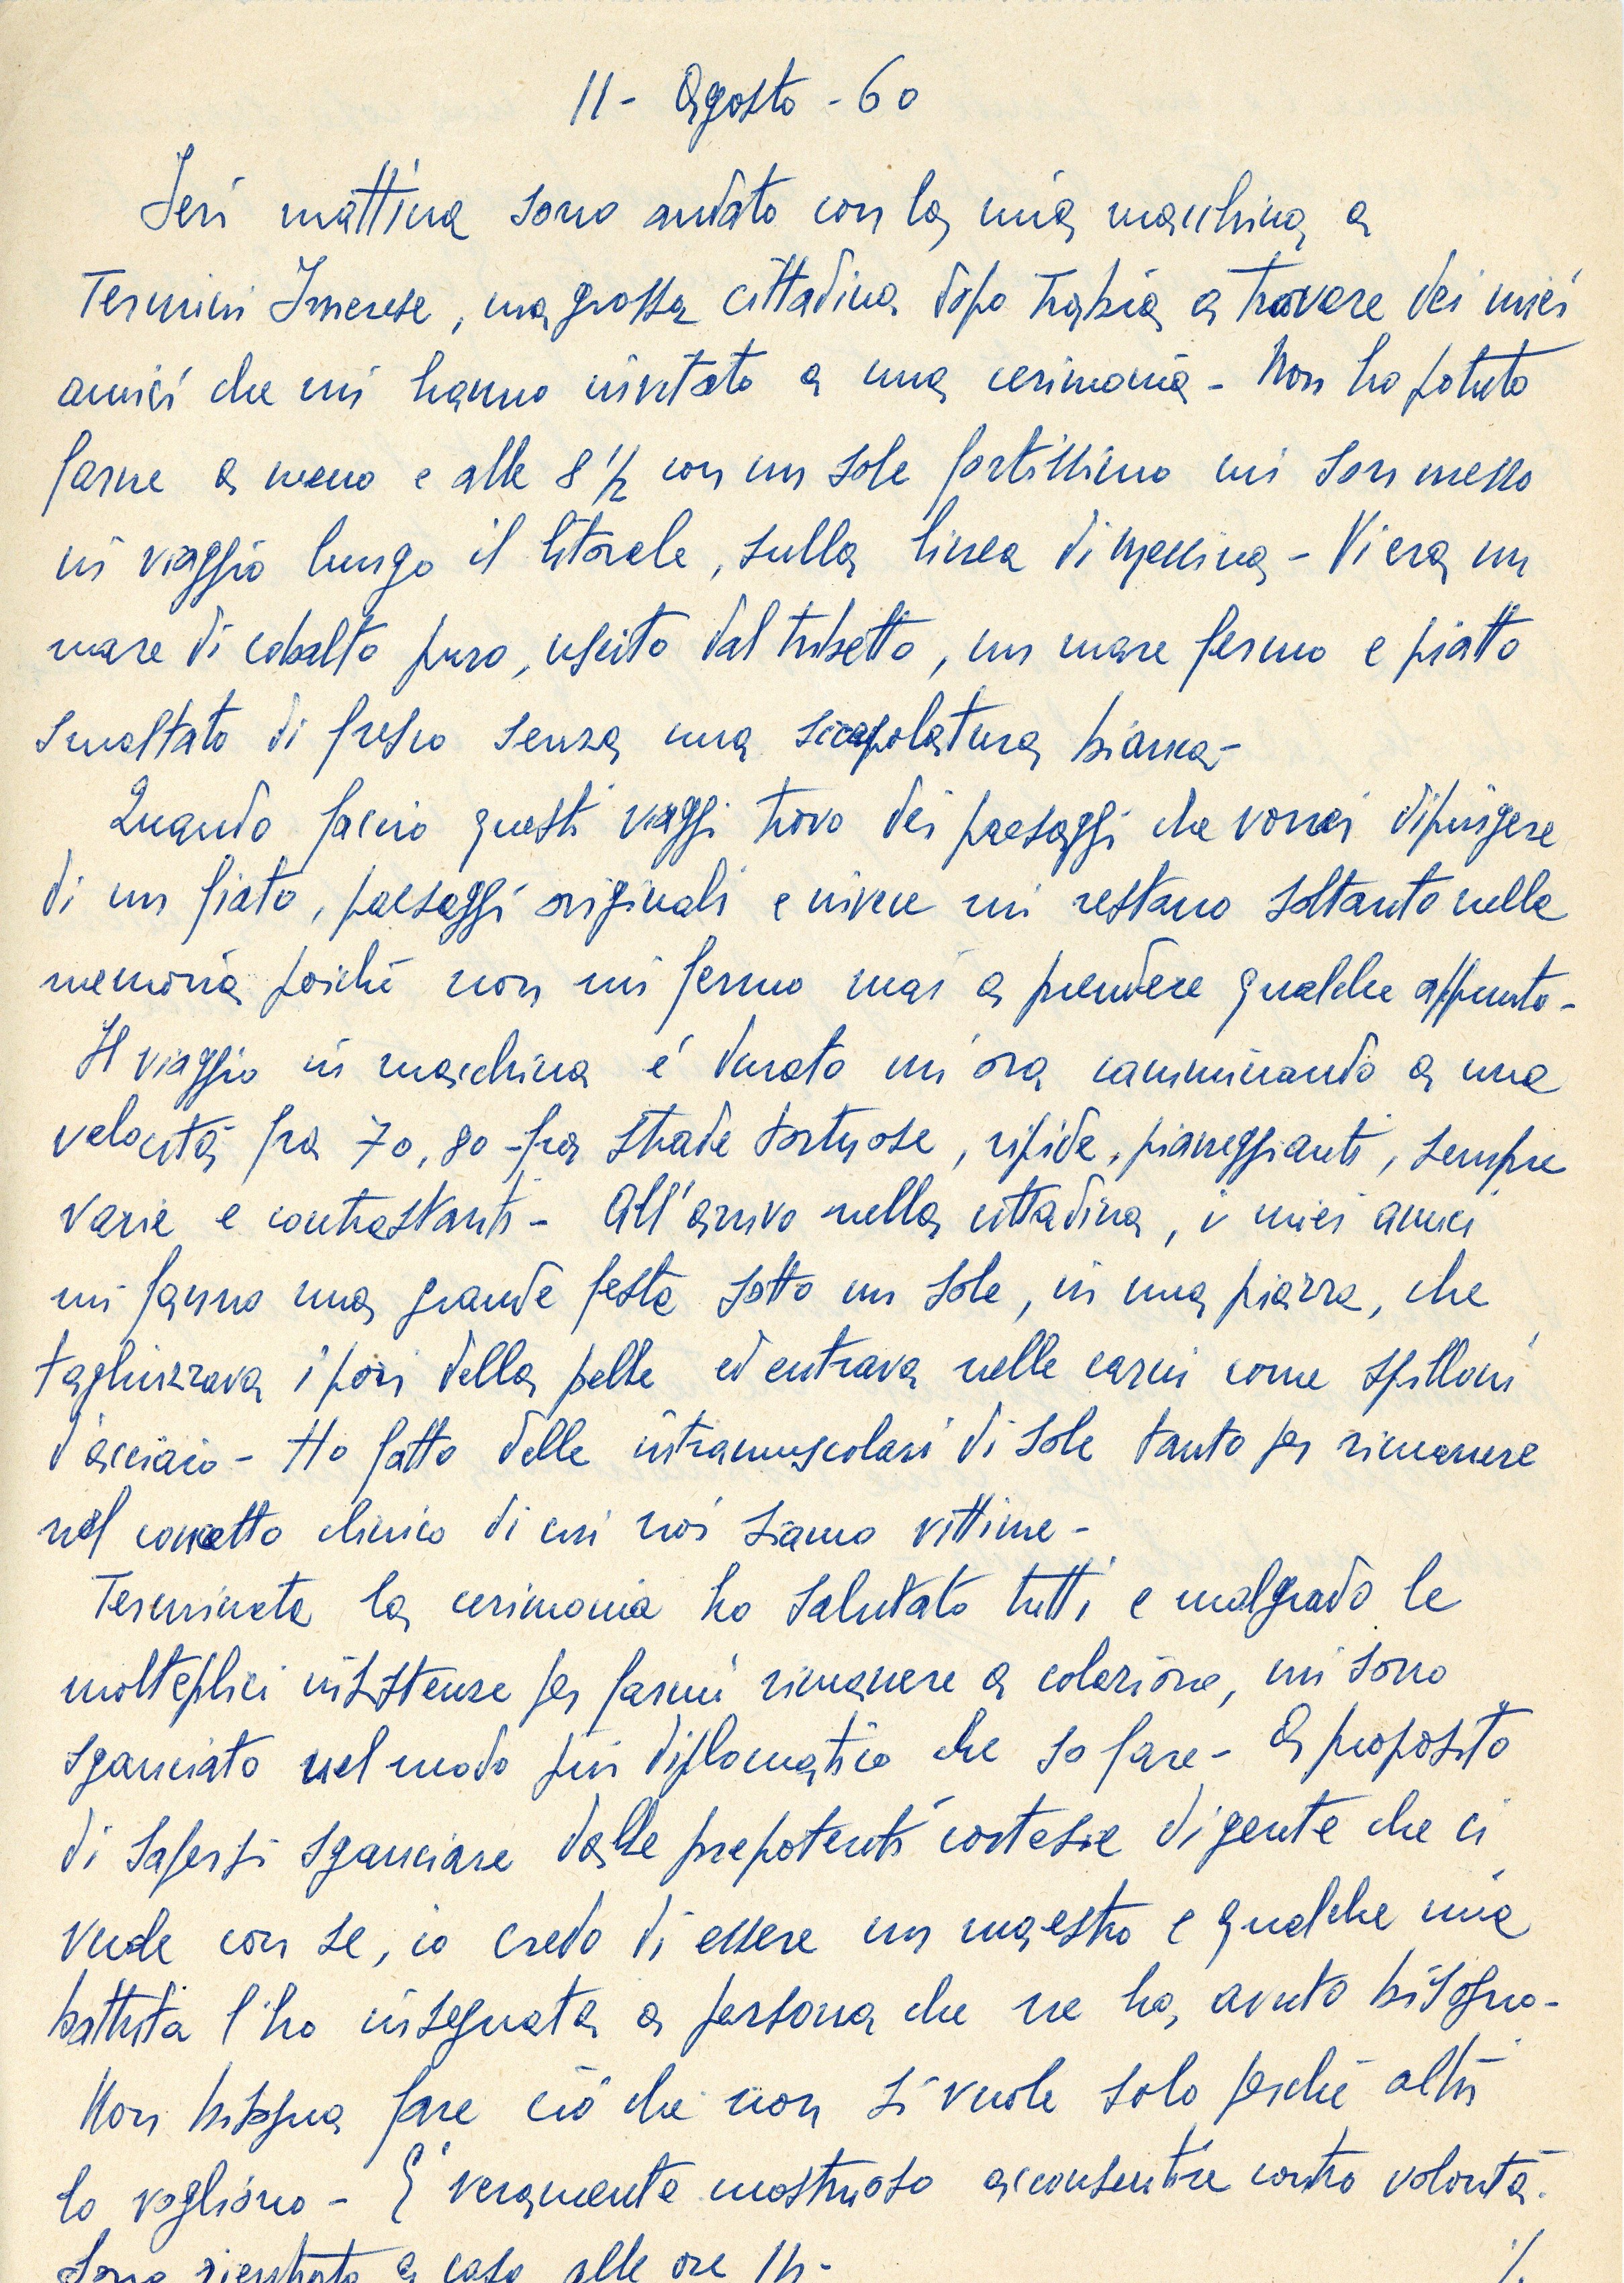 11 - Agosto - 60
Ieri mattina sono andato con la mia macchina a
Termini Imerese, una grossa cittadina dopo Trabia a trovare dei miei
amici che mi hanno invitato a una cerimonia - Non ho potuto
farne a meno e alle 8 1/2 con un sole fortissimo mi son messo
in viaggio lungo il litorale, sulla linea di Messina - Vi era un
mare di cobalto puro, uscito dal tubetto, un mare fermo e piatto
smaltato di fresco senza una scapolatura bianca -
Quando faccio questi viaggi trovo dei paesaggi che vorrei dipingere
di un fiato, paesaggi originali e invece mi restano soltanto nella
memoria poiché non mi fermo mai a prendere qualche appunto -
Il viaggio in macchina é durato un'ora camminando a una
velocità fra 70, 80 - fra strade tortuose, ripide, pianeggianti, sempre
varie e contrastanti - All'arrivo nella cittadina, i miei amici
mi fanno una grande festa sotto un sole, in una piazza, che
tagliuzzava i pori della pelle ed entrava nelle carni come spilloni
d'acciaio - Ho fatto delle intramuscolari di sole tanto per rimanere
nel concetto clinico di cui noi siamo vittime -
Terminata la cerimonia ho salutato tutti e malgrado le
molteplici insistenze per farmi rimanere a colazione, mi sono
sganciato nel modo più diplomatico che so fare - A proposito
di sapersi sganciare dalle prepotenti cortesie di gente che ci
vuole con se, io credo di essere un maestro e qualche mia
battuta l'ho insegnata a persona che ne ha avuto bisogno -
Non bisogna fare ciò che non si vuole solo perché altri
lo vogliono - E' veramente mostruoso acconsentire contro volontà.
Sono rientrato a casa alle ore 14 -
./.